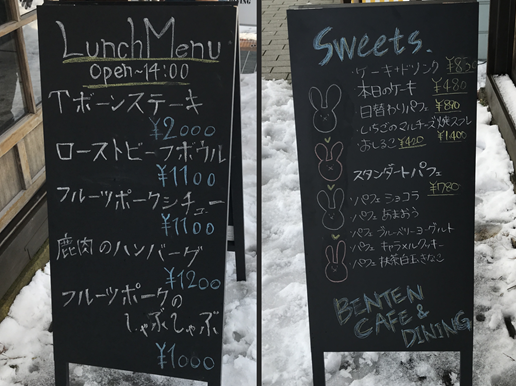 Lunch Menu
open~14:00
Tボーンステーキ
¥2000
ローストビーフボウル
¥1100
フルーツポークシチュー
¥1100
鹿肉のハンバーグ
¥1200
フルーツポークの
しゃぶしゃぶ
¥1000
Sweets.
・ケーキ+ドリンク ¥850
本日のケーキ ¥480
・日替わりパフェ
・いちごのマルチーズ焼スフレ
・おしるこ ¥420 ¥1400
スタンダートパフェ
¥780
・パフェ ショコラ
・パフェ あまおう
・パフェ ブルーベリーヨーグルト
・パフェ キャラメルクッキー
・パフェ 抹茶白玉きなこ
BENTEN
CAFE &
DINING